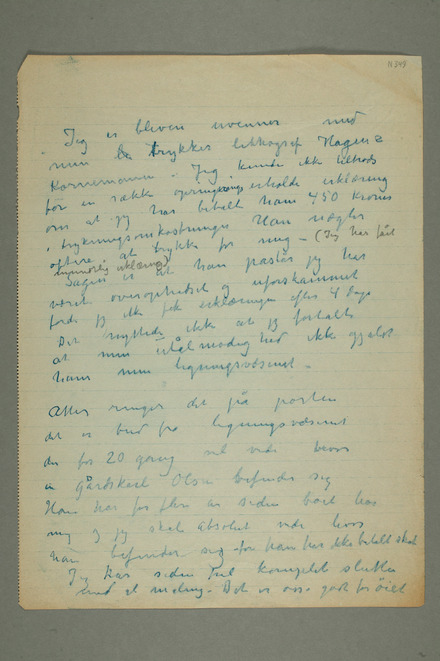 N 349
Jeg er bleven uvenner med
min trykker lithograf Hagen &
Kornemann. Jeg kunde ikke tiltrods
for en række opringnings erholde erklæring
om at jeg har betalt ham 450 Kroner
i trykningsomkostninger Han nægter
oftere at trykke for mig – (Jeg har fåt
erklæring)
Sagen er at han påstår jeg har
været overophidset og uforskammet
fordi jeg ikke fik erklæringen efter 4 dage
Det nyttede ikke at jeg fortalte
at min utålmodighed ikke gjaldt
ham men ligningsvæsenet –
Atter ringer det på porten
det er bud fra ligningsvæsenet
der for 20 gang vil vide hvor
en gårdskarl Olsen befinder sig
Han har for flere år siden boet hos
mig og jeg skal absolut vide hvor
han befinder sig for han har ikke betalt skat
Jeg har siden jul komplet sluttet
med at male – Det er også godt for øiet